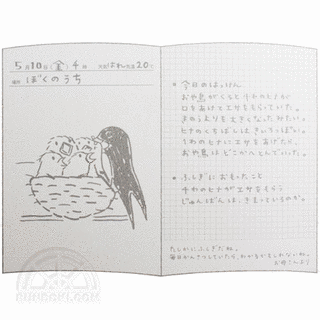 5月10日(金) 4時 天気はれ 気温20℃
場所 ぼくのうち
*今日のはっけん
お や鳥がくると 4わのヒナが
口をあけてエサをもらっていた。
まえよりも大きくなったみたい。
ヒナのくちばしはきいろっぽい。
1わのヒナにエサをあげたら、
お や鳥はどこかへとんでいった。
*ふしぎにおもったこと
4わのヒナがエサをもらう
じゅんばんは、きまっているのか。
たしかにふしぎだね。
毎日かんさつしていたら、わかるかもしれないね。
お母さんより